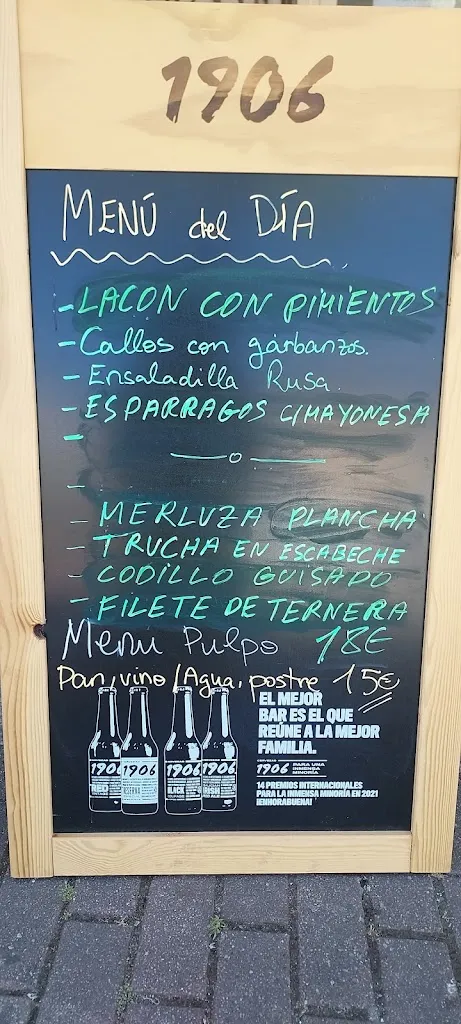 1906
MENÚ del DÍA
- LACON CON PIMIENTOS
- Callos con garbanzos.
- Ensaladilla Rusa.
- ESPARRAGOS C/MAYONESA
-
-
- MERLUZA PLANCHA
- TRUCHA EN ESCABECHE
- CODILLO GUISADO
- FILETE DE TERNERA
Menu Pulpo 18€
Pan, vino/Agua, postre 15€
EL MEJOR
BAR ES EL QUE
REÚNE A LA MEJOR
FAMILIA.
CERVEZAS
1906 PARA UNA INMENSA MINORÍA
14 PREMIOS INTERNACIONALES
PARA LA INMENSA MINORÍA EN 2021
¡ENHORABUENA!
1906 1906 1906 1906
RED RESERVA BLACK IRISH